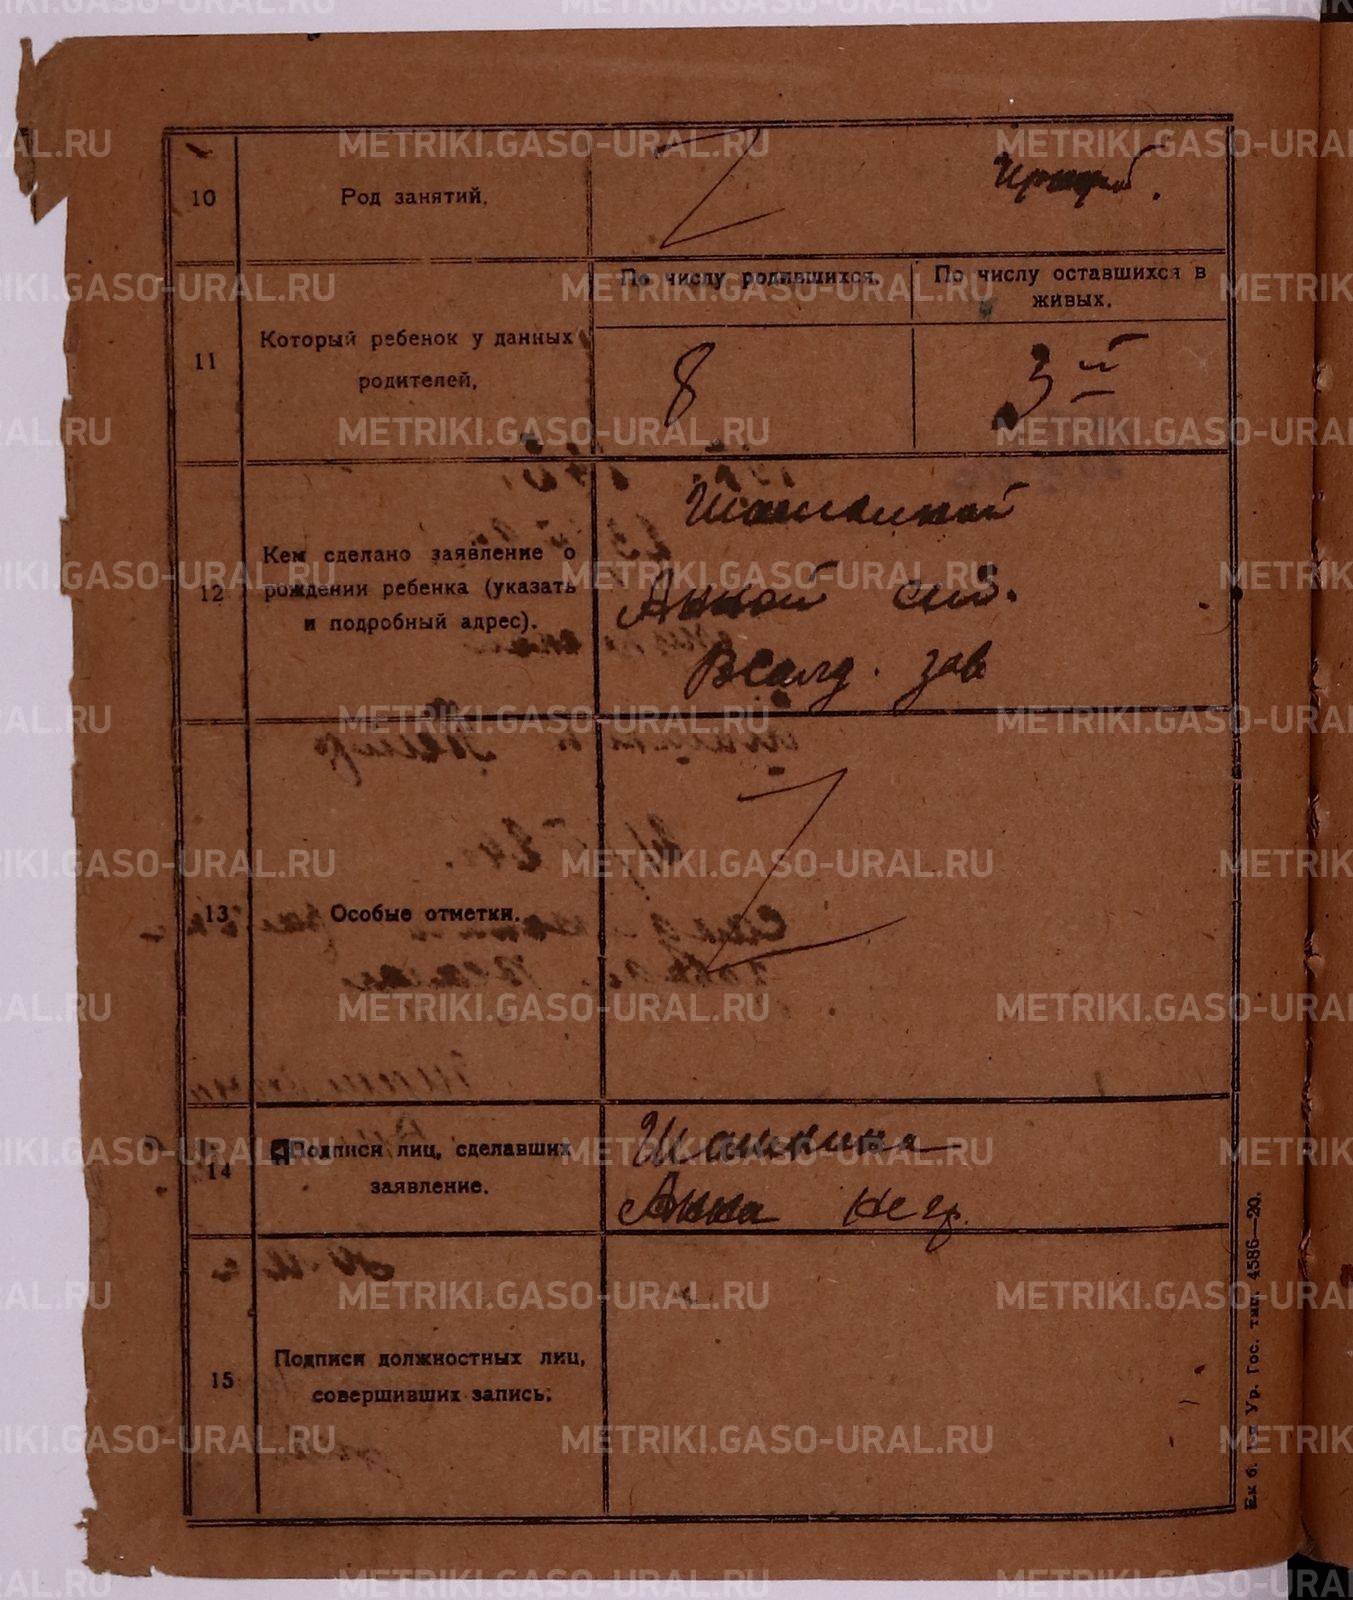 10
Род занятий.
11
Который ребенок у данных
родителей.
По числу родившихся.
По числу оставшихся в
живых.
8
3й
12
Кем сделано заявление о
рождении ребенка (указать
и подробный адрес).
Шашкиной
Анной
Всалд. зав
13
Особые отметки.
14
Подписи лиц, сделавших
заявление.
Шашкина
Анна негр.
15
Подписи должностных лиц,
совершивших запись.
Ек б. 1-я Ур. Гос. тип. 4586—20.
METRIKI.GASO-URAL.RU